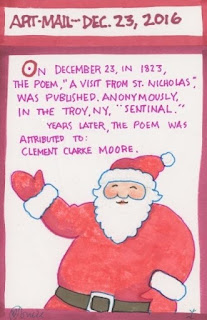 ART-MAIL-DEC. 23, 2016
ON DECEMBER 23, IN 1823,
THE POEM, "A VISIT FROM ST. NICHOLAS",
WAS PUBLISHED. ANONYMOUSLY,
IN THE TROY, NY, "SENTINAL."
YEARS LATER, THE POEM WAS
ATTRIBUTED TO:
CLEMENT CLARKE MOORE.